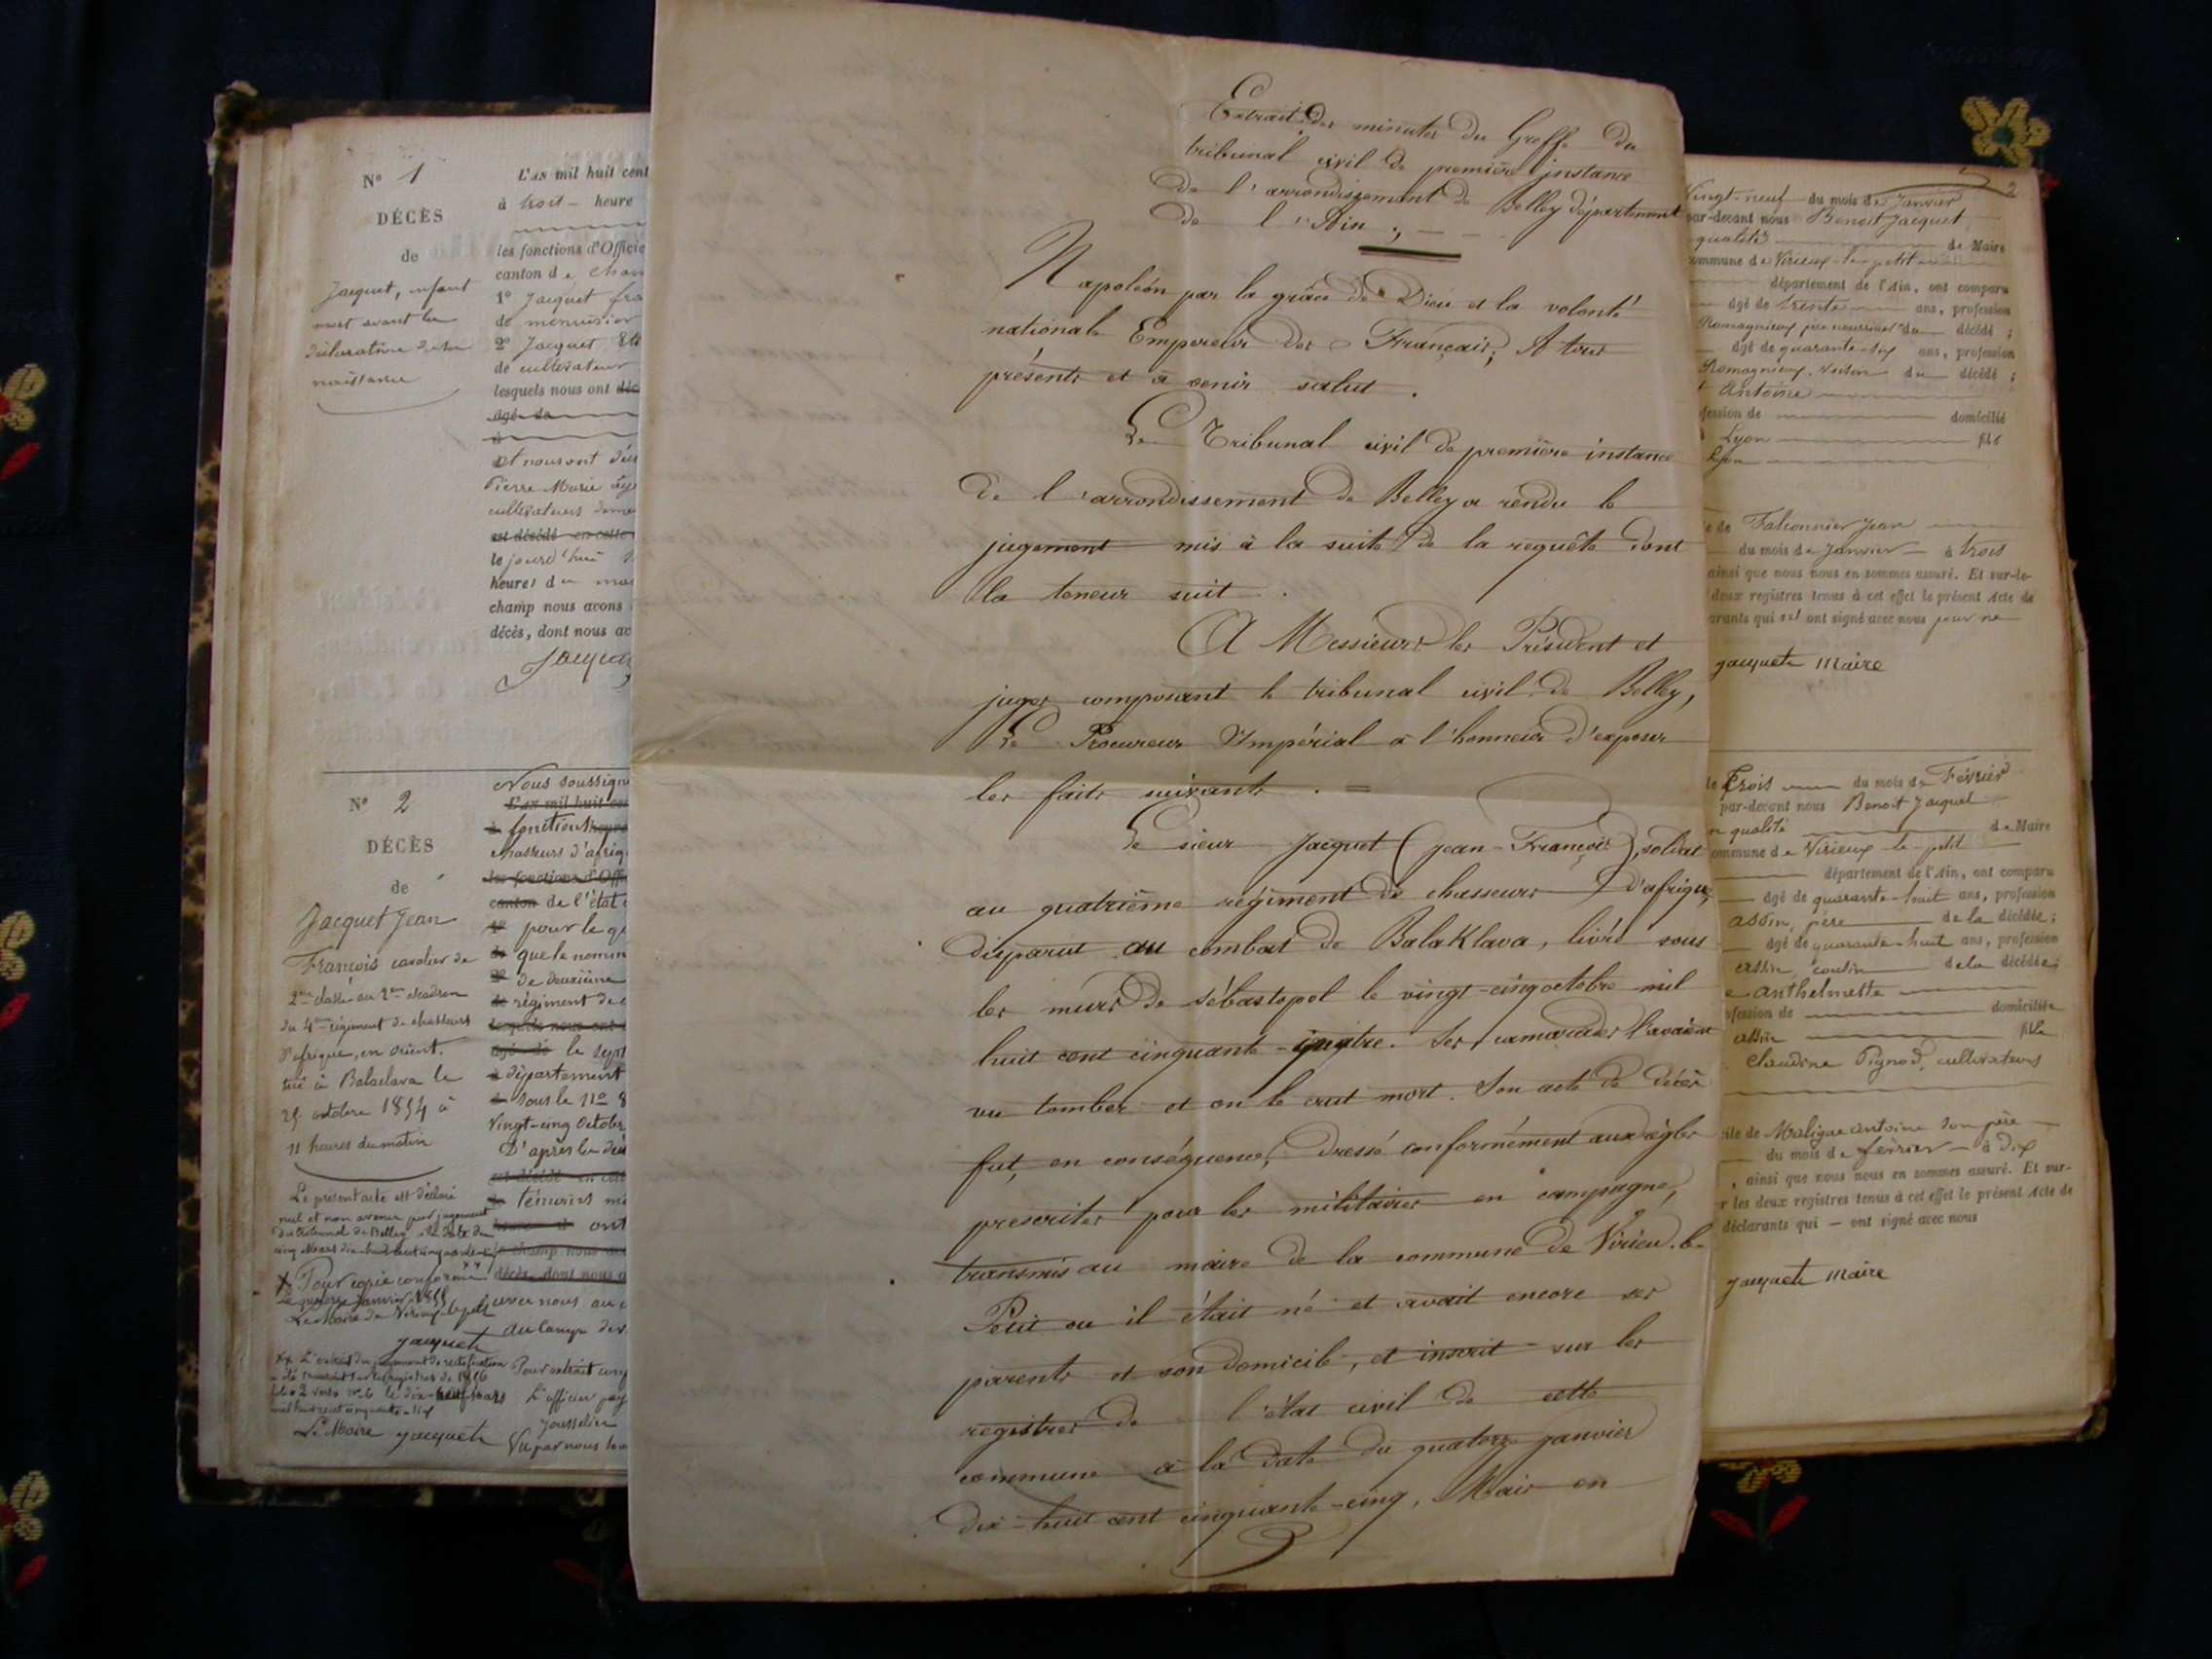 N° 1
DÉCÈS
de
Jacquet, enfant
mort avant la
déclaration de sa
naissance
L'AN mil huit cent
à trois heure
les fonctions d'Officie
canton de Cham
1° Jacquet fra
de menuisier
2° Jacquet
de cultivateur
lesquels nous ont déc
âgé de
et nous ont
Pierre Marie
cultivateurs
est décédé en cette
le jourd'hui
heures du
champ nous avons
décès, dont nous av
N° 2
DÉCÈS
de
Jacquet Jean
François cavalier de
2me classe au 2me escadron
du 4me régiment de chasseurs
d'afrique, en orient.
tué à Balaclava le
25 octobre 1854 à
11 heures du matin
Le présent acte est déclaré
nul et non avenu par jugement
du tribunal de Belley à la date du
cinq Mars dix-huit cent cinquante-six
Pour copie conforme
Le quatorze Janvier 1855
Le Maire de Virieux le petit
Jacquet
xx L'extrait du jugement de rectification
a été transcrit sur les registres de 1856
folio 2 verso n° 6 le dix-neuf Mars
mil huit cent cinquante-six
Le Maire Jacquet
Nous soussigné
L'AN mil huit cen
à fonctions heure
chasseurs d'afriq
les fonctions d'Offi
canton de l'état c
1° pour le
de que le nomm
2° de deuxième
de régiment de c
lesquels nous ont
âgé de le sept
à département
de sous le n° 8
Vingt-cinq Octobre
D'après la
est décédé en cett
témoins
ont
champ nous
décès, dont nous a
avec nous au
au camp dev
Pour extrait
L'officier pay
Jousselin
Vu par nous
Extrait des minutes du Greffe du
tribunal civil de première instance
de l'arrondissement de Belley département
de l'Ain ;
Napoléon par la grâce de Dieu et la volonté
nationale Empereur des Français; A tous
présents et à venir salut.
Le Tribunal civil de première instance
de l'arrondissement de Belley a rendu le
jugement mis à la suite de la requête dont
la teneur suit.
A Messieurs les Président et
juges composant le tribunal civil de Belley,
Le Procureur Impérial a l'honneur d'exposer
les faits suivants. =
Le sieur Jacquet (Jean-François), soldat
au quatrième régiment de chasseurs d'afrique,
disparut au combat de Balaklava, livré sous
les murs de Sébastopol le vingt-cinq octobre mil
huit cent cinquante-quatre. Ses camarades l'avaient
vu tomber et on le crut mort. Son acte de décès
fut, en conséquence, dressé conformément aux règles
prescrites pour les militaires en campagne,
transmis au maire de la commune de Virieu-le-
Petit ou il était né et avait encore ses
parents et son domicile, et inscrit sur les
registres de l'état civil de cette
commune à la date du quatorze janvier
dix-huit cent cinquante-cinq. Mais en
2
Vingt-neuf du mois de Janvier
par-devant nous Benoit Jacquet
qualité de Maire
ommune de Virieux-le-petit
département de l'Ain, ont comparu
âgé de trente ans, profession
Romagnieux père nourricier du décédé ;
âgé de quarante-six ans, profession
Romagnieux, voisin du décédé ;
Antoine
fession de domicilié
Lyon fils
e de Falconnier Jean
du mois de Janvier à trois
ainsi que nous nous en sommes assuré. Et sur-le-
deux registres tenus à cet effet le présent Acte de
arants qui ont signé avec nous pour ne
Jacquet Maire
le trois du mois de Février
par-devant nous Benoit Jacquet
n qualité de Maire
ommune de Virieux le-petit
département de l'Ain, ont comparu
âgé de quarante-huit ans, profession
assin, père de la décédée ;
âgé de quarante-huit ans, profession
assin, cousin de la décédée ;
e anthelmette
ofession de domiciliée
assin fille
Claudine Pignod, cultivateurs
ile de Maligue antoine son père
du mois de février à dix
, ainsi que nous nous en sommes assuré. Et sur-
r les deux registres tenus à cet effet le présent Acte de
déclarants qui — ont signé avec nous
Jacquet Maire